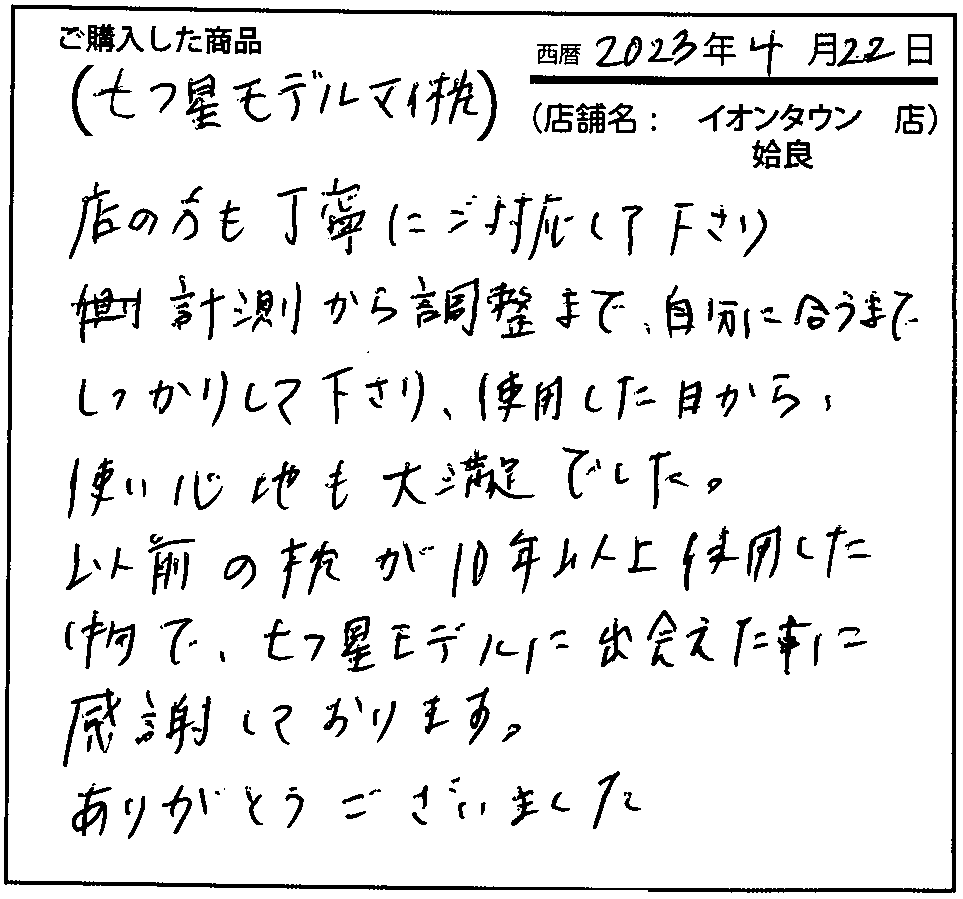 ご購入した商品
西暦 2023年4月22日
(七つ星モデルマイ枕)
(店舗名： イオンタウン 店)
姶良
店の方も丁寧にご対応して下さり
計測から調整まで、自分に合うまで
しっかりして下さり、使用した日から、
使い心地も大満足でした。
以前の枕が10年以上使用した
物で、七つ星モデルに出会えた事に
感謝しております。
ありがとうございました